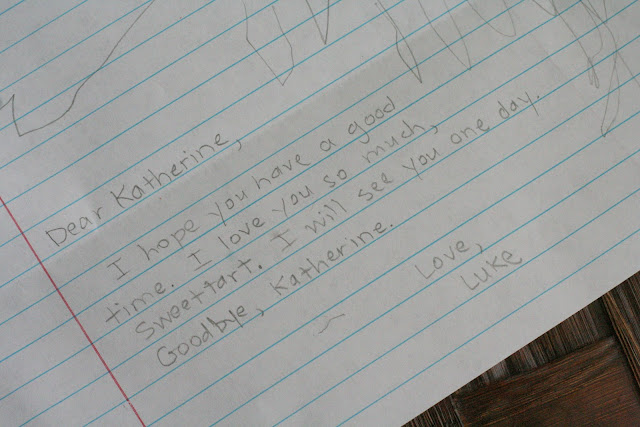 Dear Katherine,
I hope you have a good
time. I love you so much,
sweettart. I will see you one day.
Goodbye, Katherine.
Love,
Luke